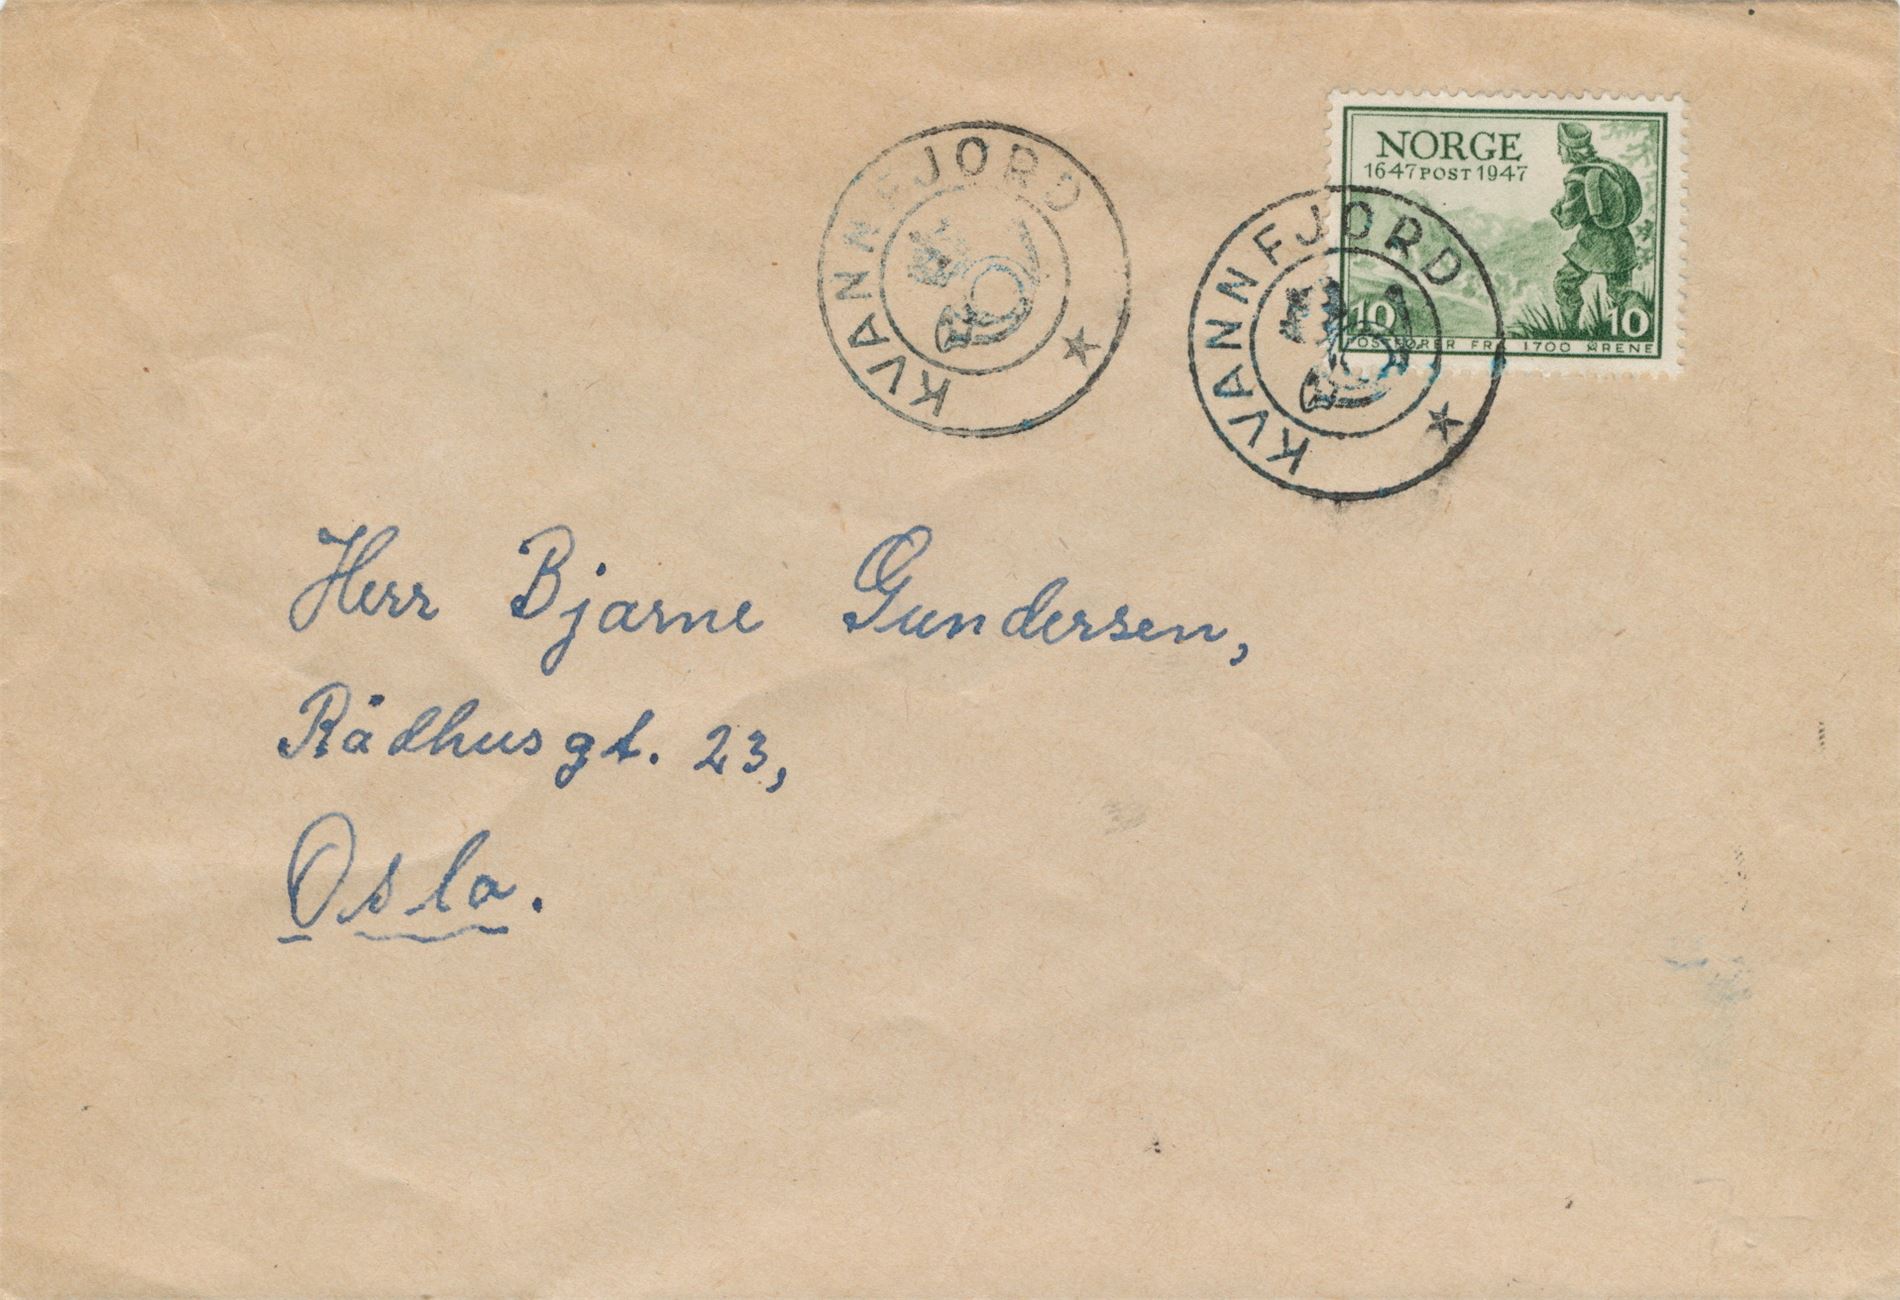 KVANNFJORD
NORGE
1647 POST 1947
KVANNFJORD
10 10
POSTFØRER FRA 1700 ÅRENE
Herr Bjarne Gundersen,
Rådhusgt. 23,
Oslo.